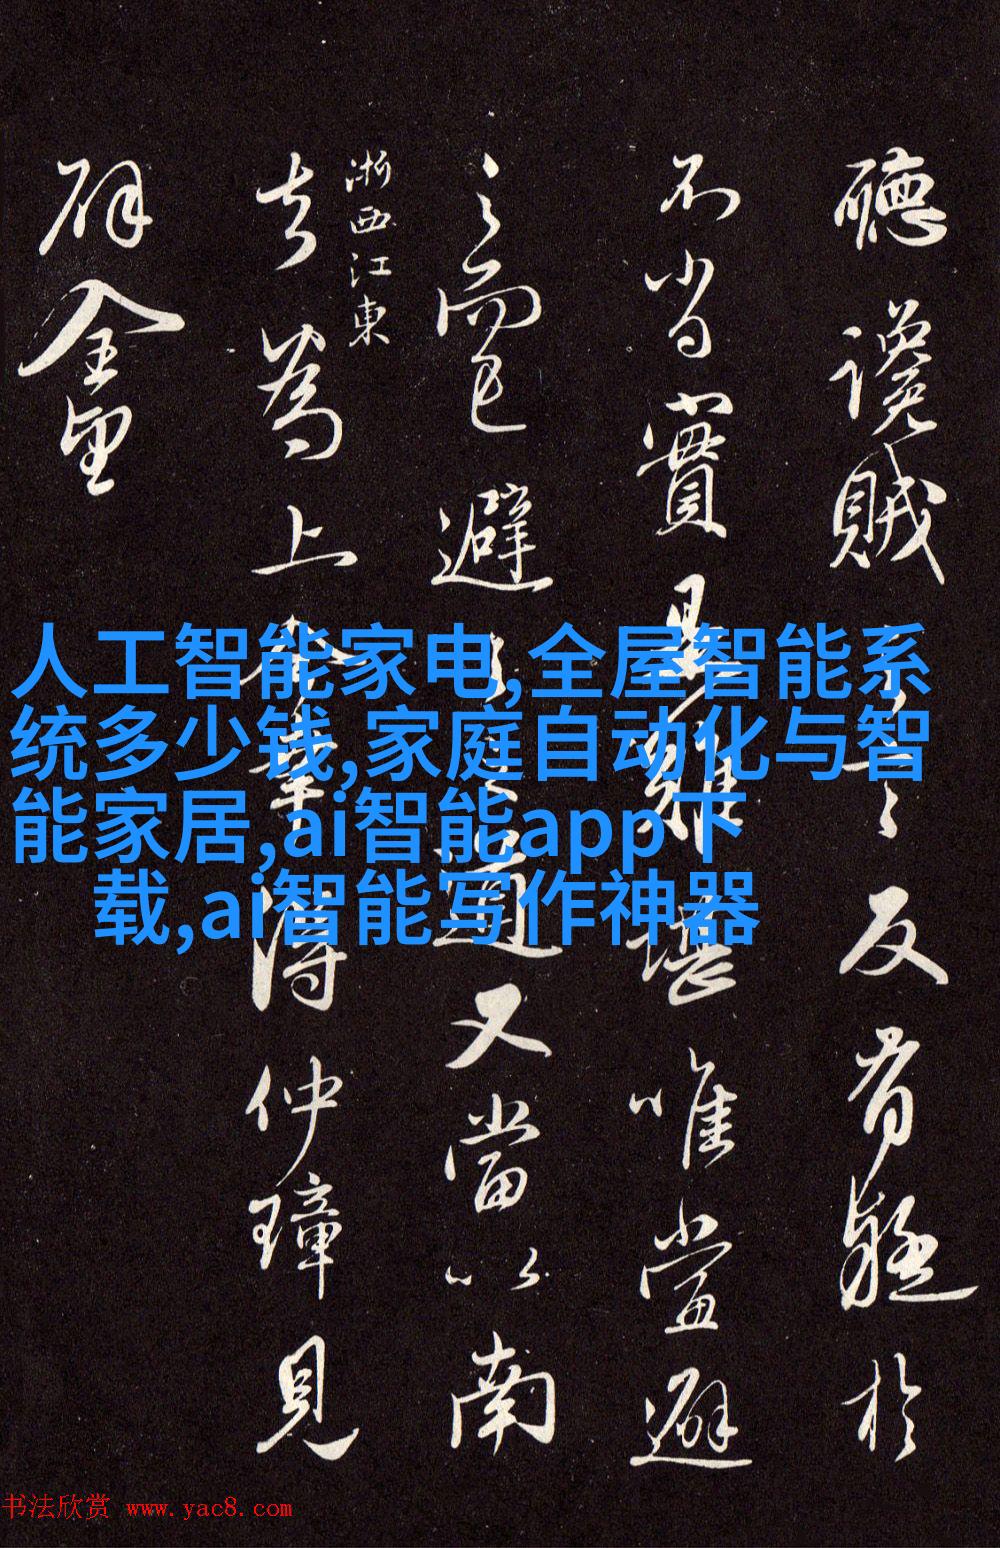 聽讒賊之言反肯疑於
不肖實是難堪唯當避
之而已避之之道又當以南
去為上
浙西江東
得仲璋見
辟金
人工智能家电,全屋智能系
统多少钱,家庭自动化与智
能家居,ai智能app下
载,ai智能写作神器
书法欣赏 www.yac8.com